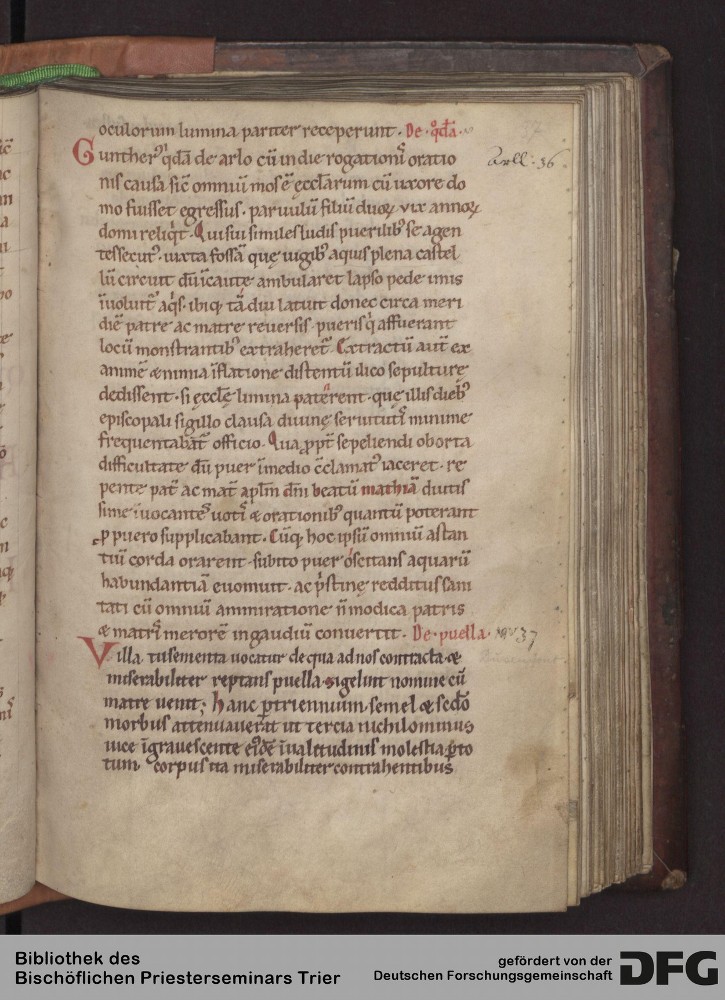 oculorum lumina pariter receperunt. De qdā.
Guntherꝰ qdā de arlo cū in die rogationis oratio
nis causa sic̄ omniū mos ē eccl̄arum cū uxore do
mo fuisset egressus. paruulū filiū duoꝝ uix annoꝝ
domi reliq̄t. Qui sui similes ludis puerilibꝰ se agen
tes secutꝰ. iuxta fossā que iugibꝰ aquis plena castel
lū circuit dū īcaute ambularet lapso pede imis
īuoluit᷑ aq̄s. ibiq; tā diu latuit donec circa meri
diē patre ac matre reuersis. pueris q̄ affuerant
locū monstrantibꝰ extraheret᷑. Extractū aut̄ ex
anime & nimia īflatione distentū ilico sepulture
dedissent. si eccl̄e lumina paterent. que illis diebꝰ
episcopali sigillo clausa diuine seruitutis minime
frequentabāt᷑ officio. Qua ꝓpt̄ sepeliendi oborta
difficultate dū puer ī medio cclamatꝰ iaceret. re
pente pat̄ ac mat̄ apl̄m dn̄i beatū mathiā diutis
sime īuocantes uotis & orationibꝰ quantū poterant
ꝓ puero supplicabant. Cūq; hoc ipsū omniū astan
tiū corda orarent. subito puer oscitans aquarū
habundantiā euomuit. ac pstine redditus sani
tati cū omniū ammiratione n̄ modica patris
& matris merorē in gaudiū conuertit. De puella. 37
Villa tusementa uocatur de qua ad nos contracta &
miserabiliter reptans puella sigelint nomine cū
matre uenit. Hanc ꝑ triennium semel & scd̄o
morbus attenuauerat ut tercia nichilominus
uice īgrauescente eiꝰdē īualitudinis molestia ꝑ to
tum corpus ita miserabiliter contrahentibus
Arll. 36
Bibliothek des
Bischöflichen Priesterseminars Trier
gefördert von der
Deutschen Forschungsgemeinschaft
DFG